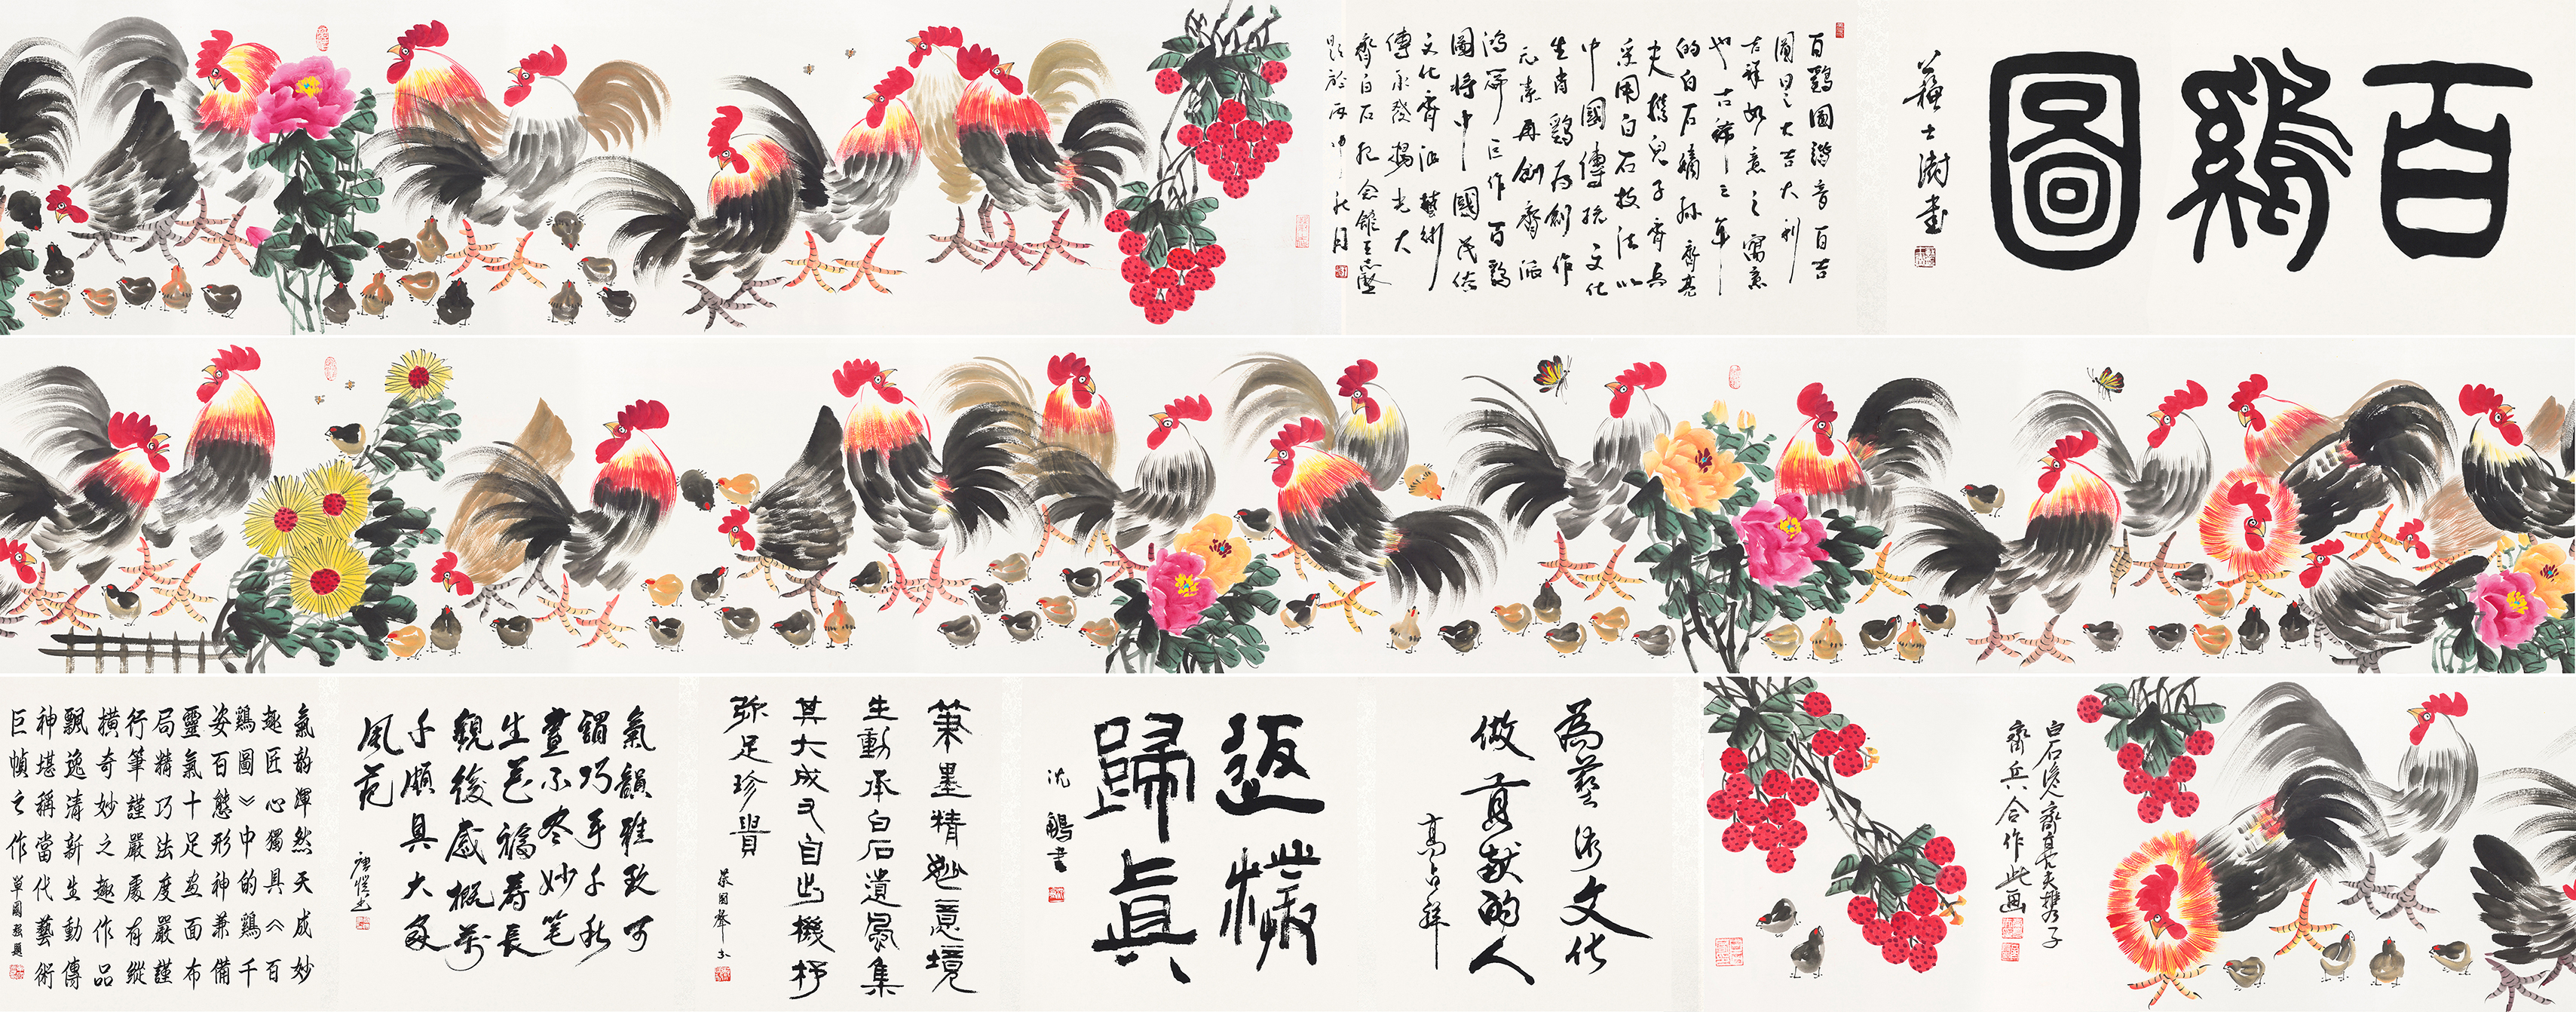 百鷄圖
蘇士澍書
百鷄圖諧音百吉
圖曰之大吉大利
吉祥如意之寓意
也古稀之年
的白石嫡孫齊亮
夫攜兒子齊兵
采用白石技法以
中國傳統文化
生肖鷄为創作
元素再創齊派
鴻篇巨作百鷄
圖將中國民俗
文化齊派藝術
傳承發揚光大
齊白石紀念館王志堅
題於丙申秋月
白石後人齊亮夫攜子
齊兵合作此画
為藝術文化
做貢献的人
高占祥
返樸
歸真
沈鵬書
筆墨精妙意境
生動承白石遺風集
其大成又自出機杼
弥足珍貴
氣韻雅致可
謂巧手千秋
畫不尽妙笔
生花福壽長
観後感概萬
千頗具大家
風范
氣韵渾然天成妙
趣匠心獨具《百
鷄圖》中的鷄千
姿百態形神兼備
靈氣十足畫面布
局精巧法度嚴謹
行筆謹嚴處有縱
橫奇妙之趣作品
飄逸清新生動傳
神堪稱當代藝術
巨幀之作
單國强題